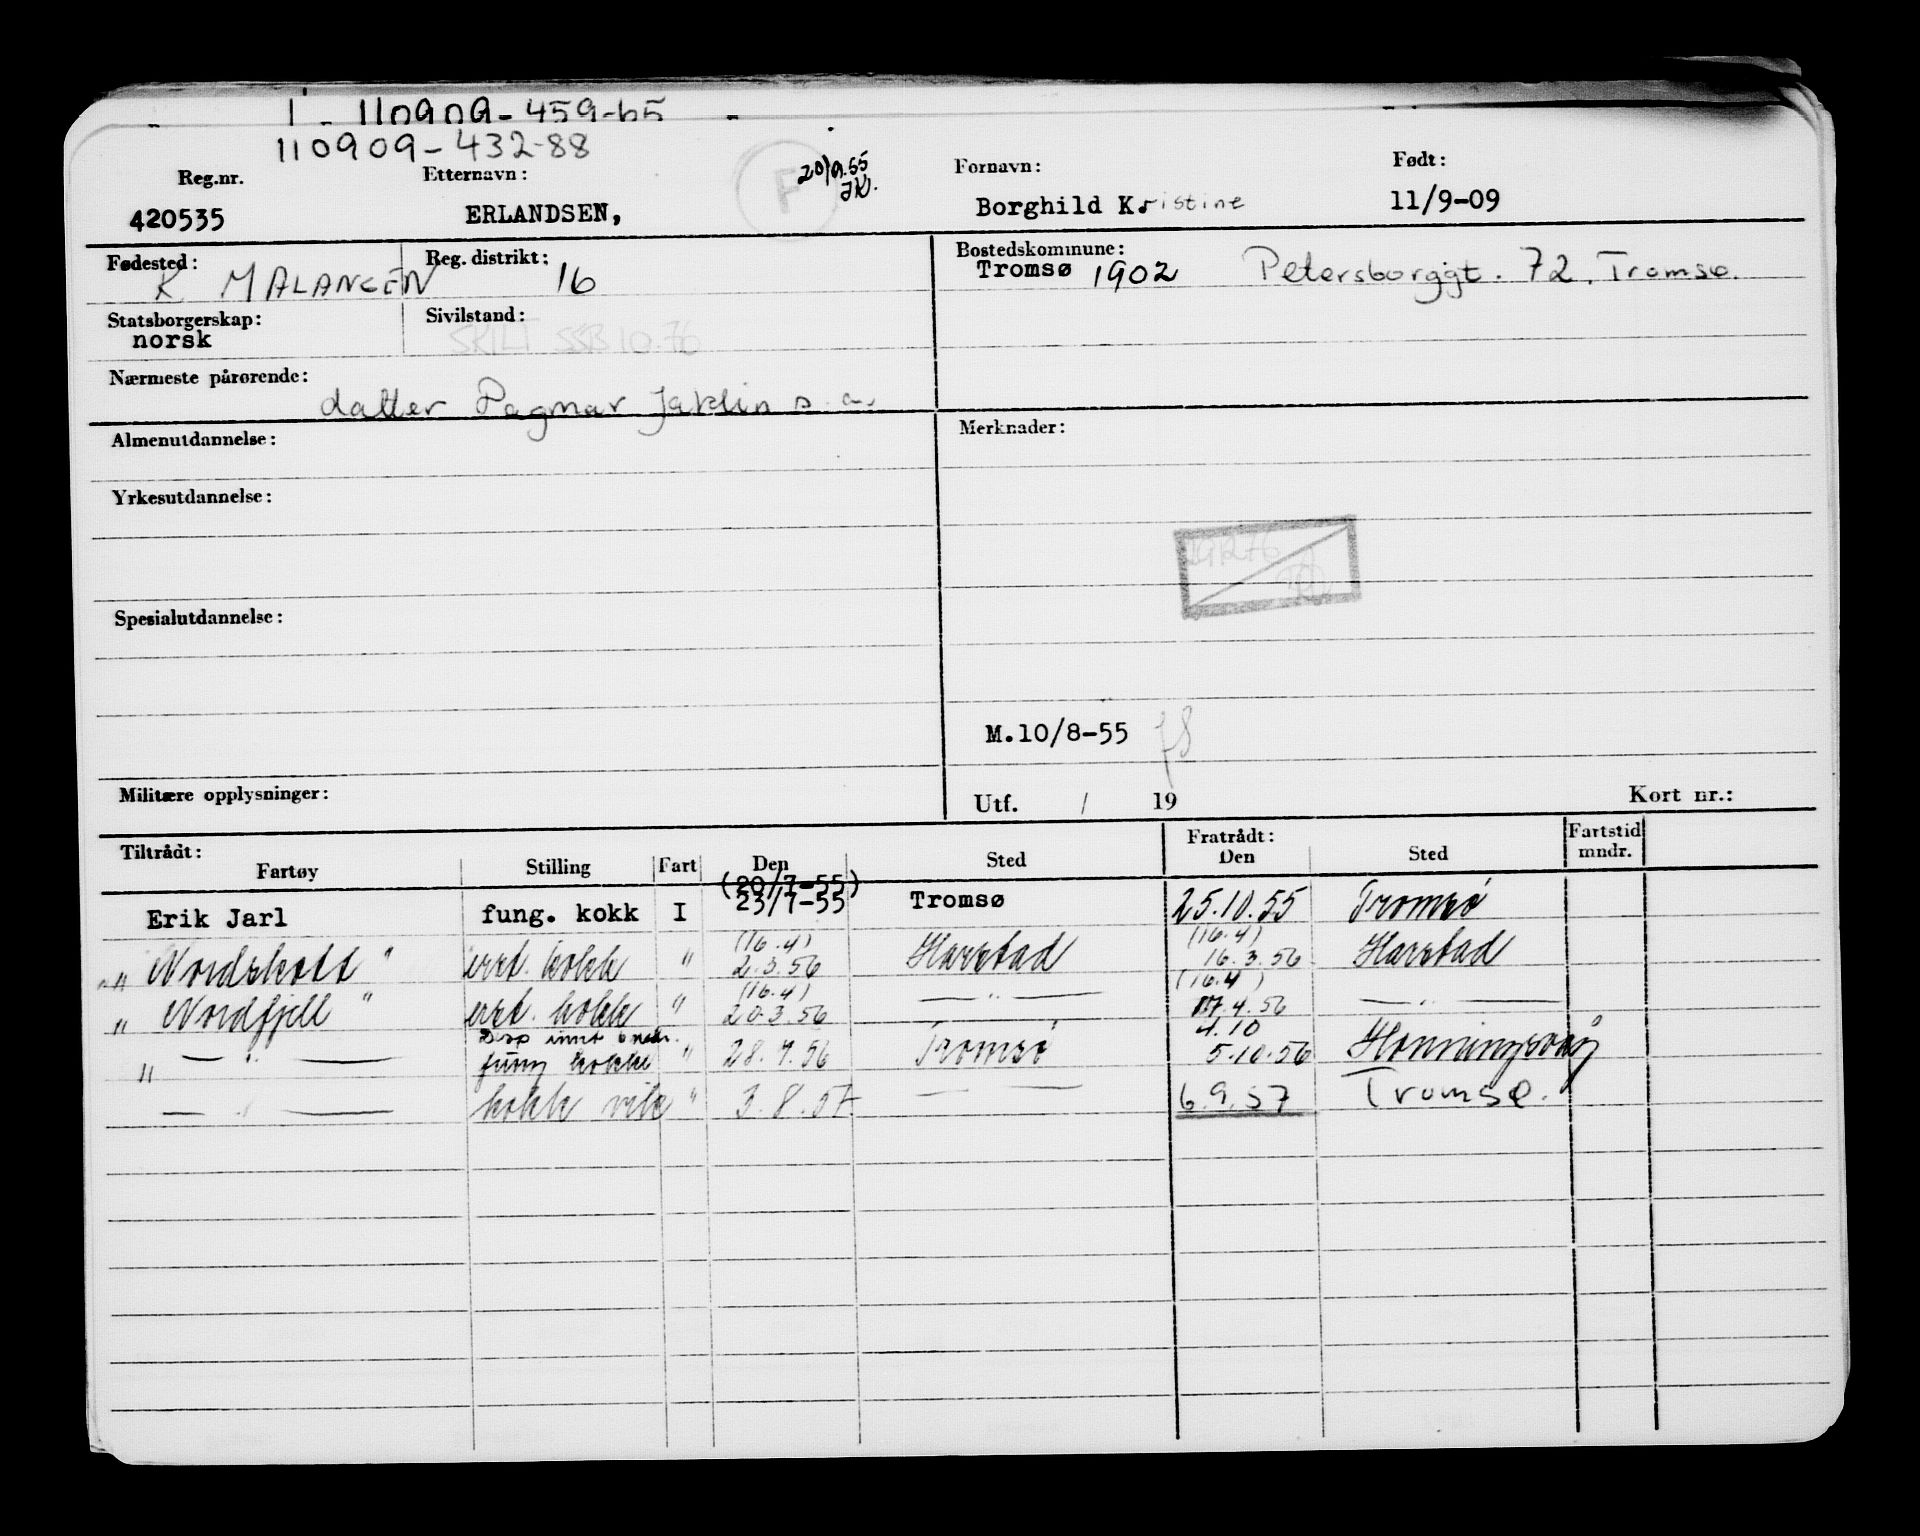 1 - 110909-459-65
110909-432-88
Reg.nr. Etternavn: F 20/9.55 Fornavn: Født:
420535 ERLANDSEN, Borghild Kristine 11/9-09
Fødested: Reg. distrikt: Bostedskommune:
K MALANGEN 16 Tromsø 1902 Petersborggt. 72. Tromsø.
Statsborgerskap: Sivilstand:
norsk SKILT SSB 10.76
Nærmeste pårørende:
datter Dagmar Jaklin s.a.
Almenutdannelse: Merknader:
Yrkesutdannelse:
Spesialutdannelse:
M.10/8-55
Militære opplysninger: Utf. / 19 Kort nr.:
Tiltrådt: Fratrådt: Fartstid
Fartøy Stilling Fart Den Sted Den Sted mndr.
(20/7-55)
Erik Jarl fung. kokk I 23/7-55 Tromsø 25.10.55 Tromsø
(16.4) (16.4)
" Nordskott " ext. kokk " 2.3.56 Harstad 16.3.56 Harstad
(16.4) (16.4)
" Nordfjell " ext. kokk " 20.3.56 — " — 17.4.56 — " —
Disp innt 6 mndr. 4.10
" — " — fung kokk " 28.7.56 Tromsø 5.10.56 Honningsvåg
— " — kokk vik " 3.8.57 — 6.9.57 Tromsø.